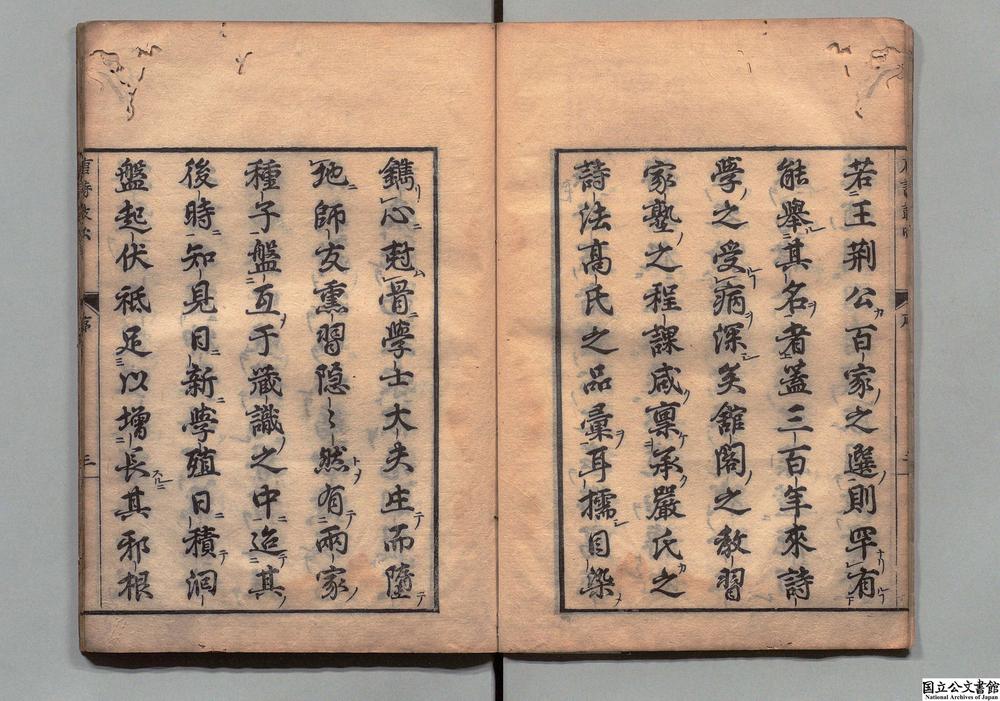 若王荆公百家之選則罕有
能舉其名者蓋三百年來詩
學之受病深矣舘閣之教習
家塾之程課咸禀承嚴氏之
詩法高氏之品彙耳擩目染
鐫心尅骨學士大夫生而墮
地師友熏習隐〻然有兩家
種子盤互于蔵識之中迨其
後時知見日新學殖日積洄
盤起伏祗足以增長其邪根
国立公文書館
National Archives of Japan